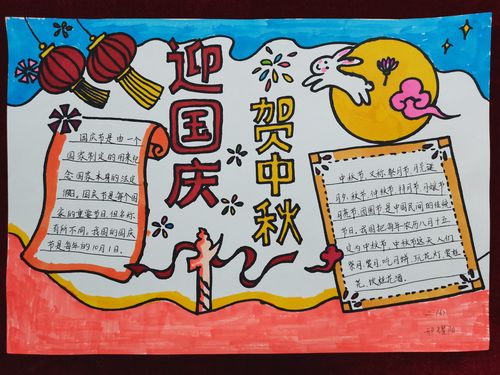 迎国庆
贺中秋
国庆节是由一个
国家制定的用来纪
念国家本身的法定
假日。国庆节是每个国
家的重要节日,但名称
有所不同。我国的国庆
节是每年的10月1日。
中秋节,又称祭月节、月光诞
月夕、秋节、仲秋节、拜月节、月娘节
月亮节、团圆节,是中国民间的传统
节日。我国把每年农历八月十五
定为中秋节。中秋节这天人们
祭月、赏月、吃月饼、玩花灯、赏桂
花、饮桂花酒。